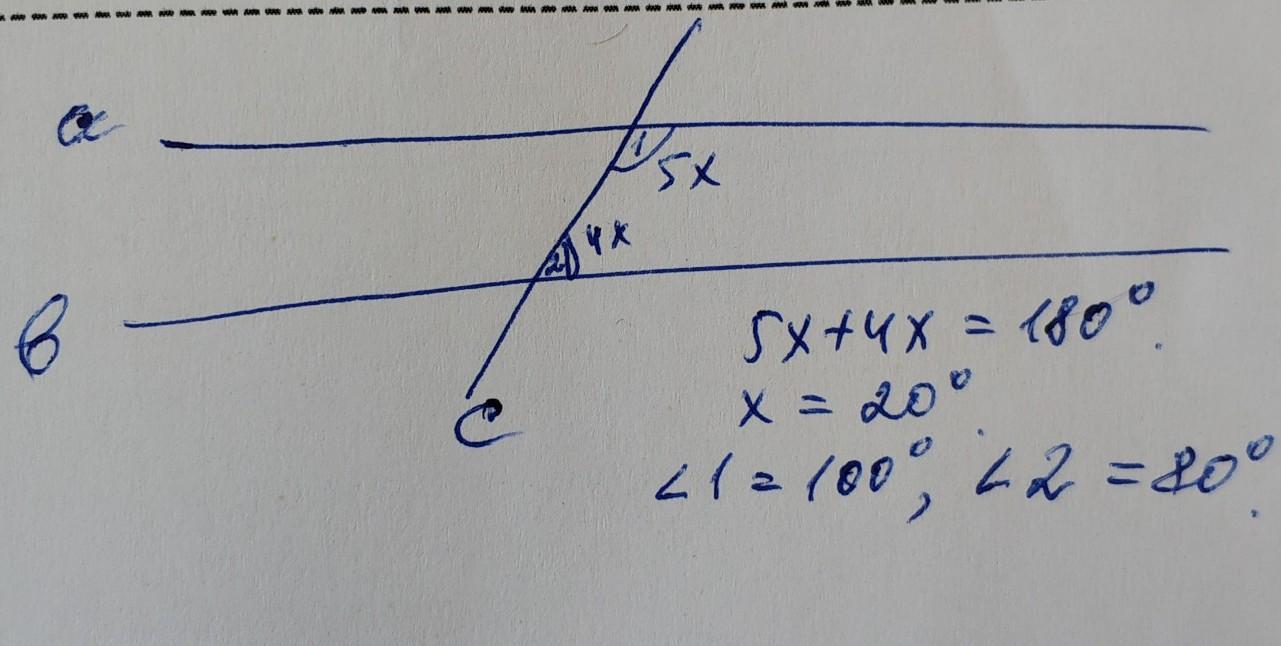 a
1
5x
4x
2
в
5x+4x = 180°.
x = 20°.
c
<1 = 100°, <2 = 80°.